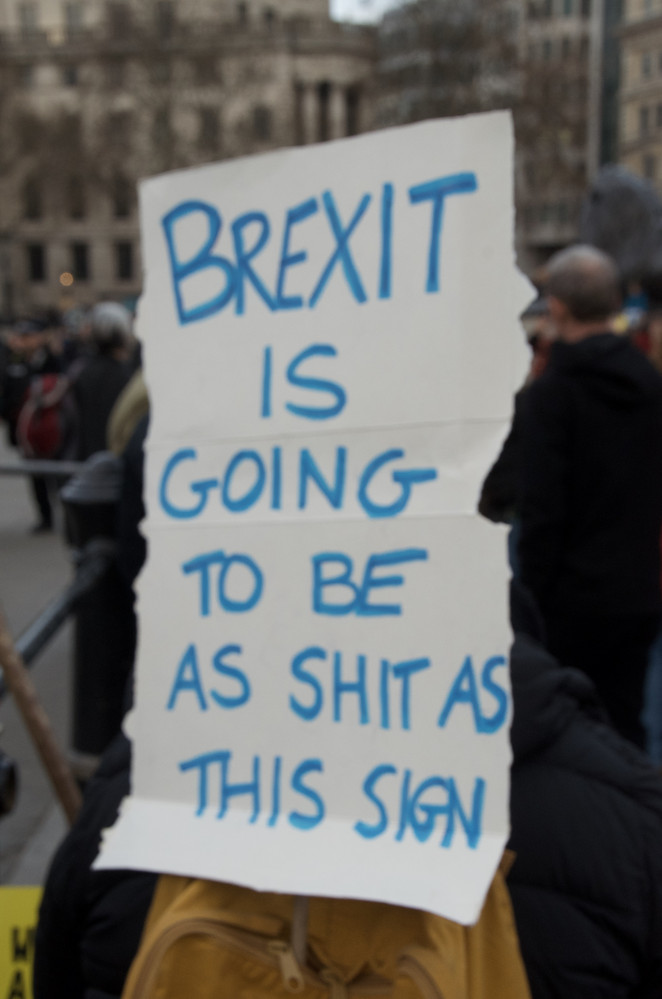 BREXIT
IS
GOING
TO BE
AS SHIT AS
THIS SIGN